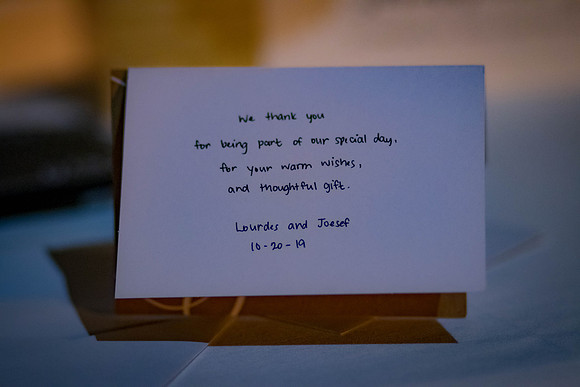 We thank you
for being part of our special day,
for your warm wishes,
and thoughtful gift.
Lourdes and Joesef
10-20-19